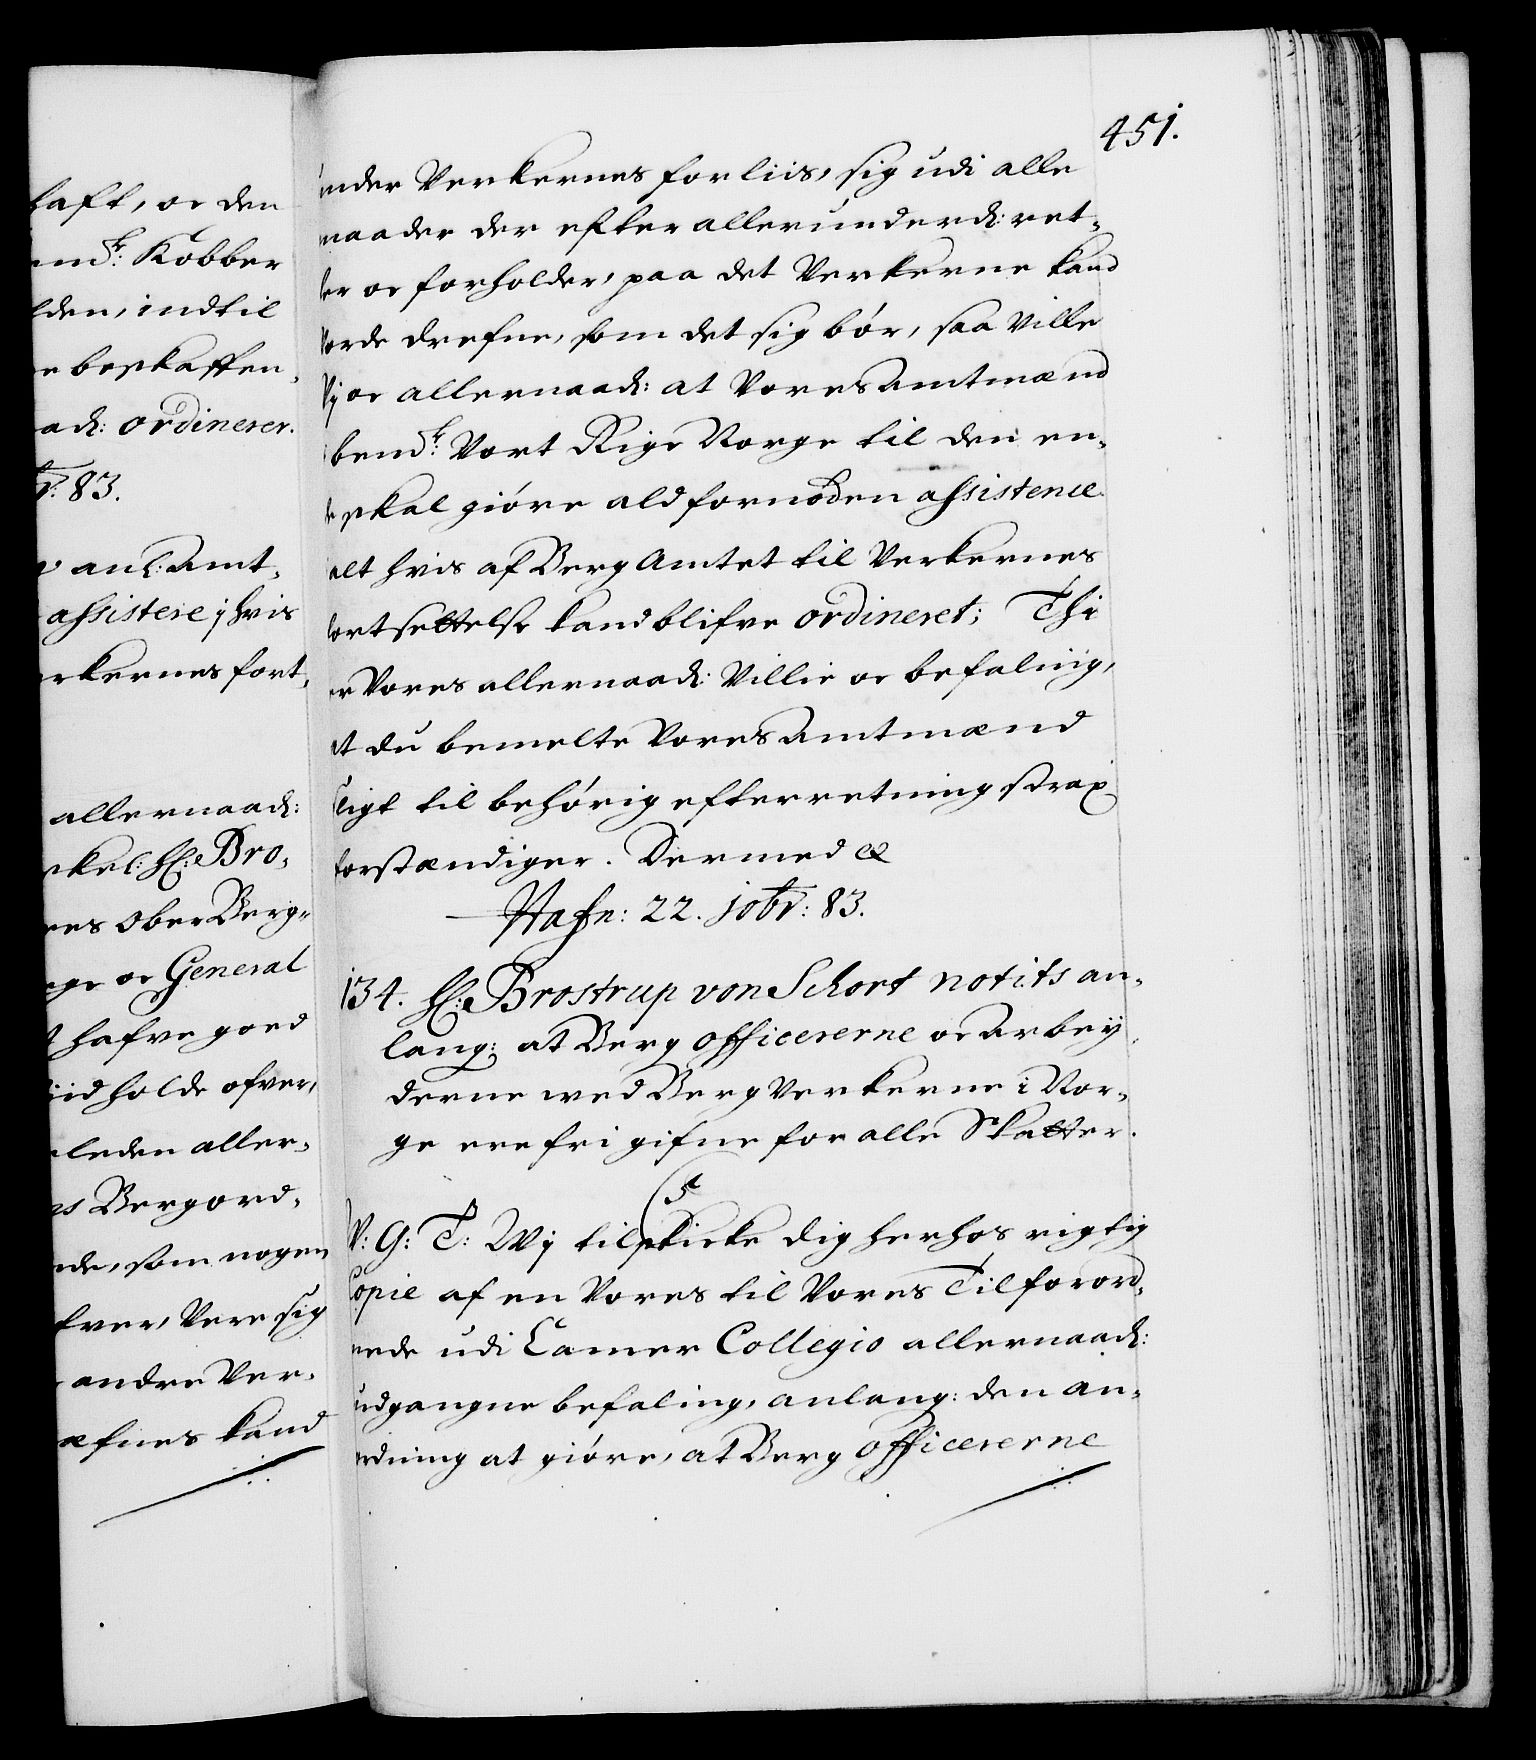 haft, oc den
Kobber
lden, indtil
beskaffen,
ad: ordinerer.
83.
anl: Amt,
assistere i hvis
erkernes fort,
allernaad:
Bro,
Ober Berg,,
oc General
hafve goed
holde ofver,
leden aller,
Bergord,
som nogen
Vere sig
andre Ver,
kand
451.
under Verkernes forliis, sig udi alle
maader der efter allerunderd: ret,
ter oc forholder, paa det Verkerne kand
vorde drefne, som det sig bør, saa Ville
Vj oc allernaad: at Vores Amtmænd
j bemdte: Vort Rige Norge til den en,
de skal giøre ald fornøden assistence
alt hvis af Berg Amtet til Verkernes
fortsettelse kand blifve ordineret; Thi
er Vores allernaad: Villie oc befaling,
at du bemelte Vores Amtmænd
sligt til behørig efterretning strax
forstændiger. Dermed &
Hafn: 22. 10br: 83.
134. H: Brostrup von Schort notits an,
lang: at Berg officererne oc Arbey,
derne wed Berg Verkerne i Nor,
ge ere fri gifne for alle Skatter.
V: G: T: Wj tilskicke dig herhos rigtig
Copie af en Vores til Vores Tilforord,
nede udi Camer Collegio allernaad:
udgangne befaling, anlang: den an,
ordning at giøre, at Berg officererne